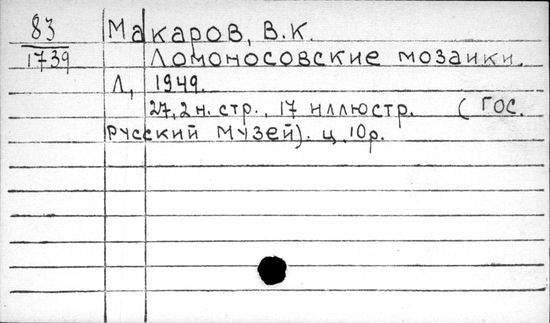 83
1739
Макаров, В.К.
Ломоносовские мозаики.
Л, 1949.
27, 2 н. стр., 17 иллюстр. ( Гос.
Русский Музей). ц. 10 р.